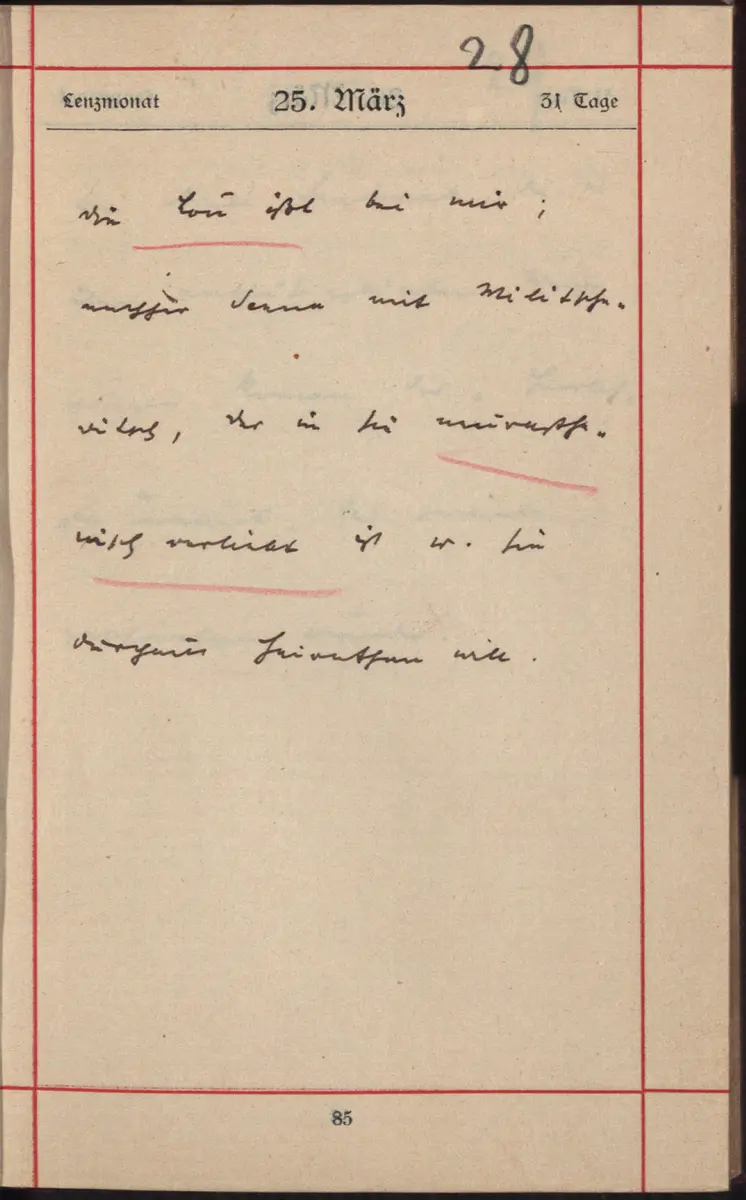 28
Lenzmonat 25. März 31 Tage
die Lou ißt bei mir;
nachher Danna mit Militsche-
vitsch, der in sie mœurasthe-
nisch verliebt ist u. sie
durchaus heirathen will.
85